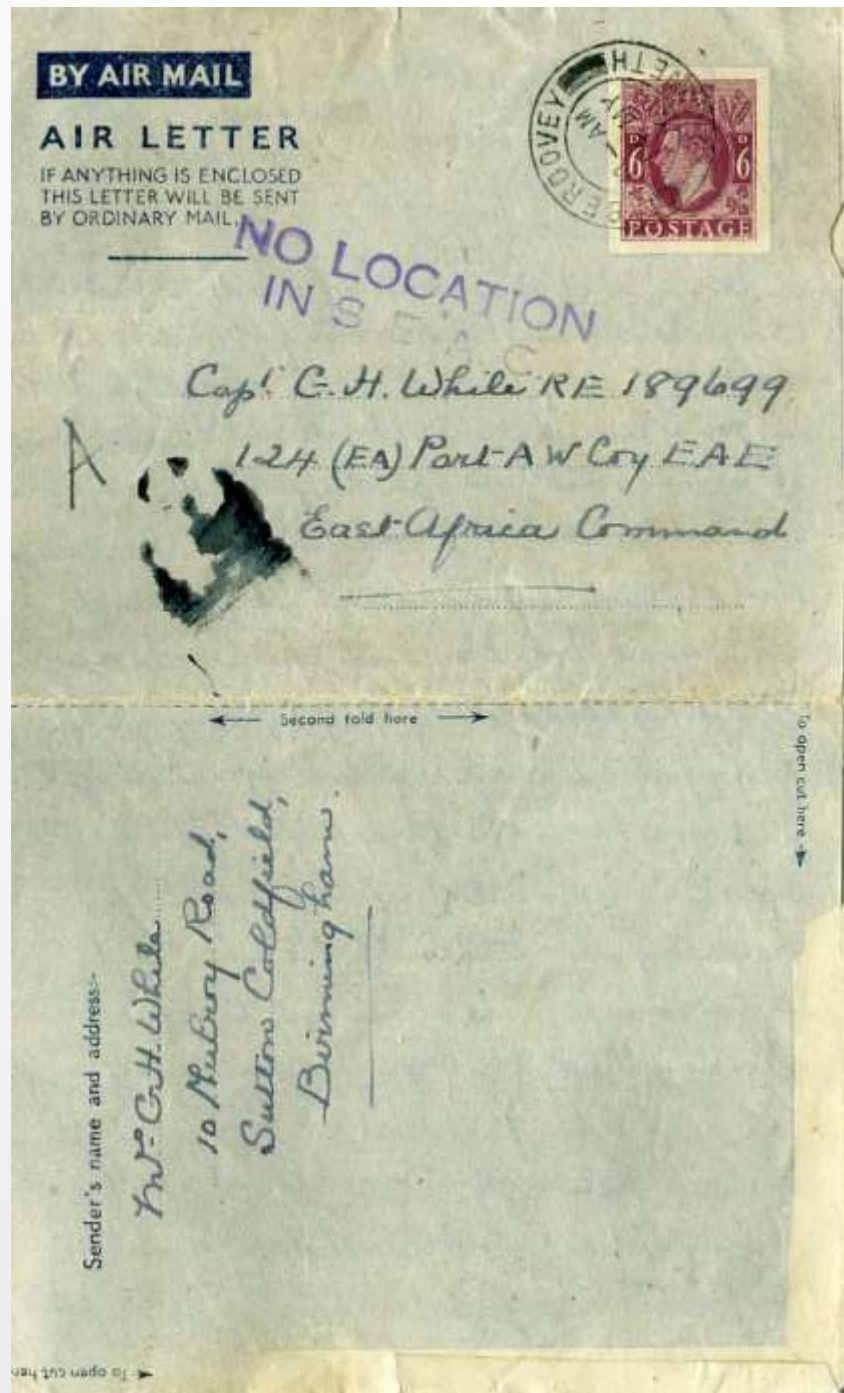 BY AIR MAIL
AIR LETTER
IF ANYTHING IS ENCLOSED
THIS LETTER WILL BE SENT
BY ORDINARY MAIL.
ABERDOVEY
AM
MY
6 D D 6
POSTAGE
NO LOCATION
IN S E A C
Capt. G. H. While RE 189699
A
124 (EA) Part A W Coy E.A.E
East Africa Command
← Second fold here →
To open cut here →
Sender's name and address:-
Mrs G. H. While
10 Road,
Sutton Coldfield,
Birmingham.
To open cut here